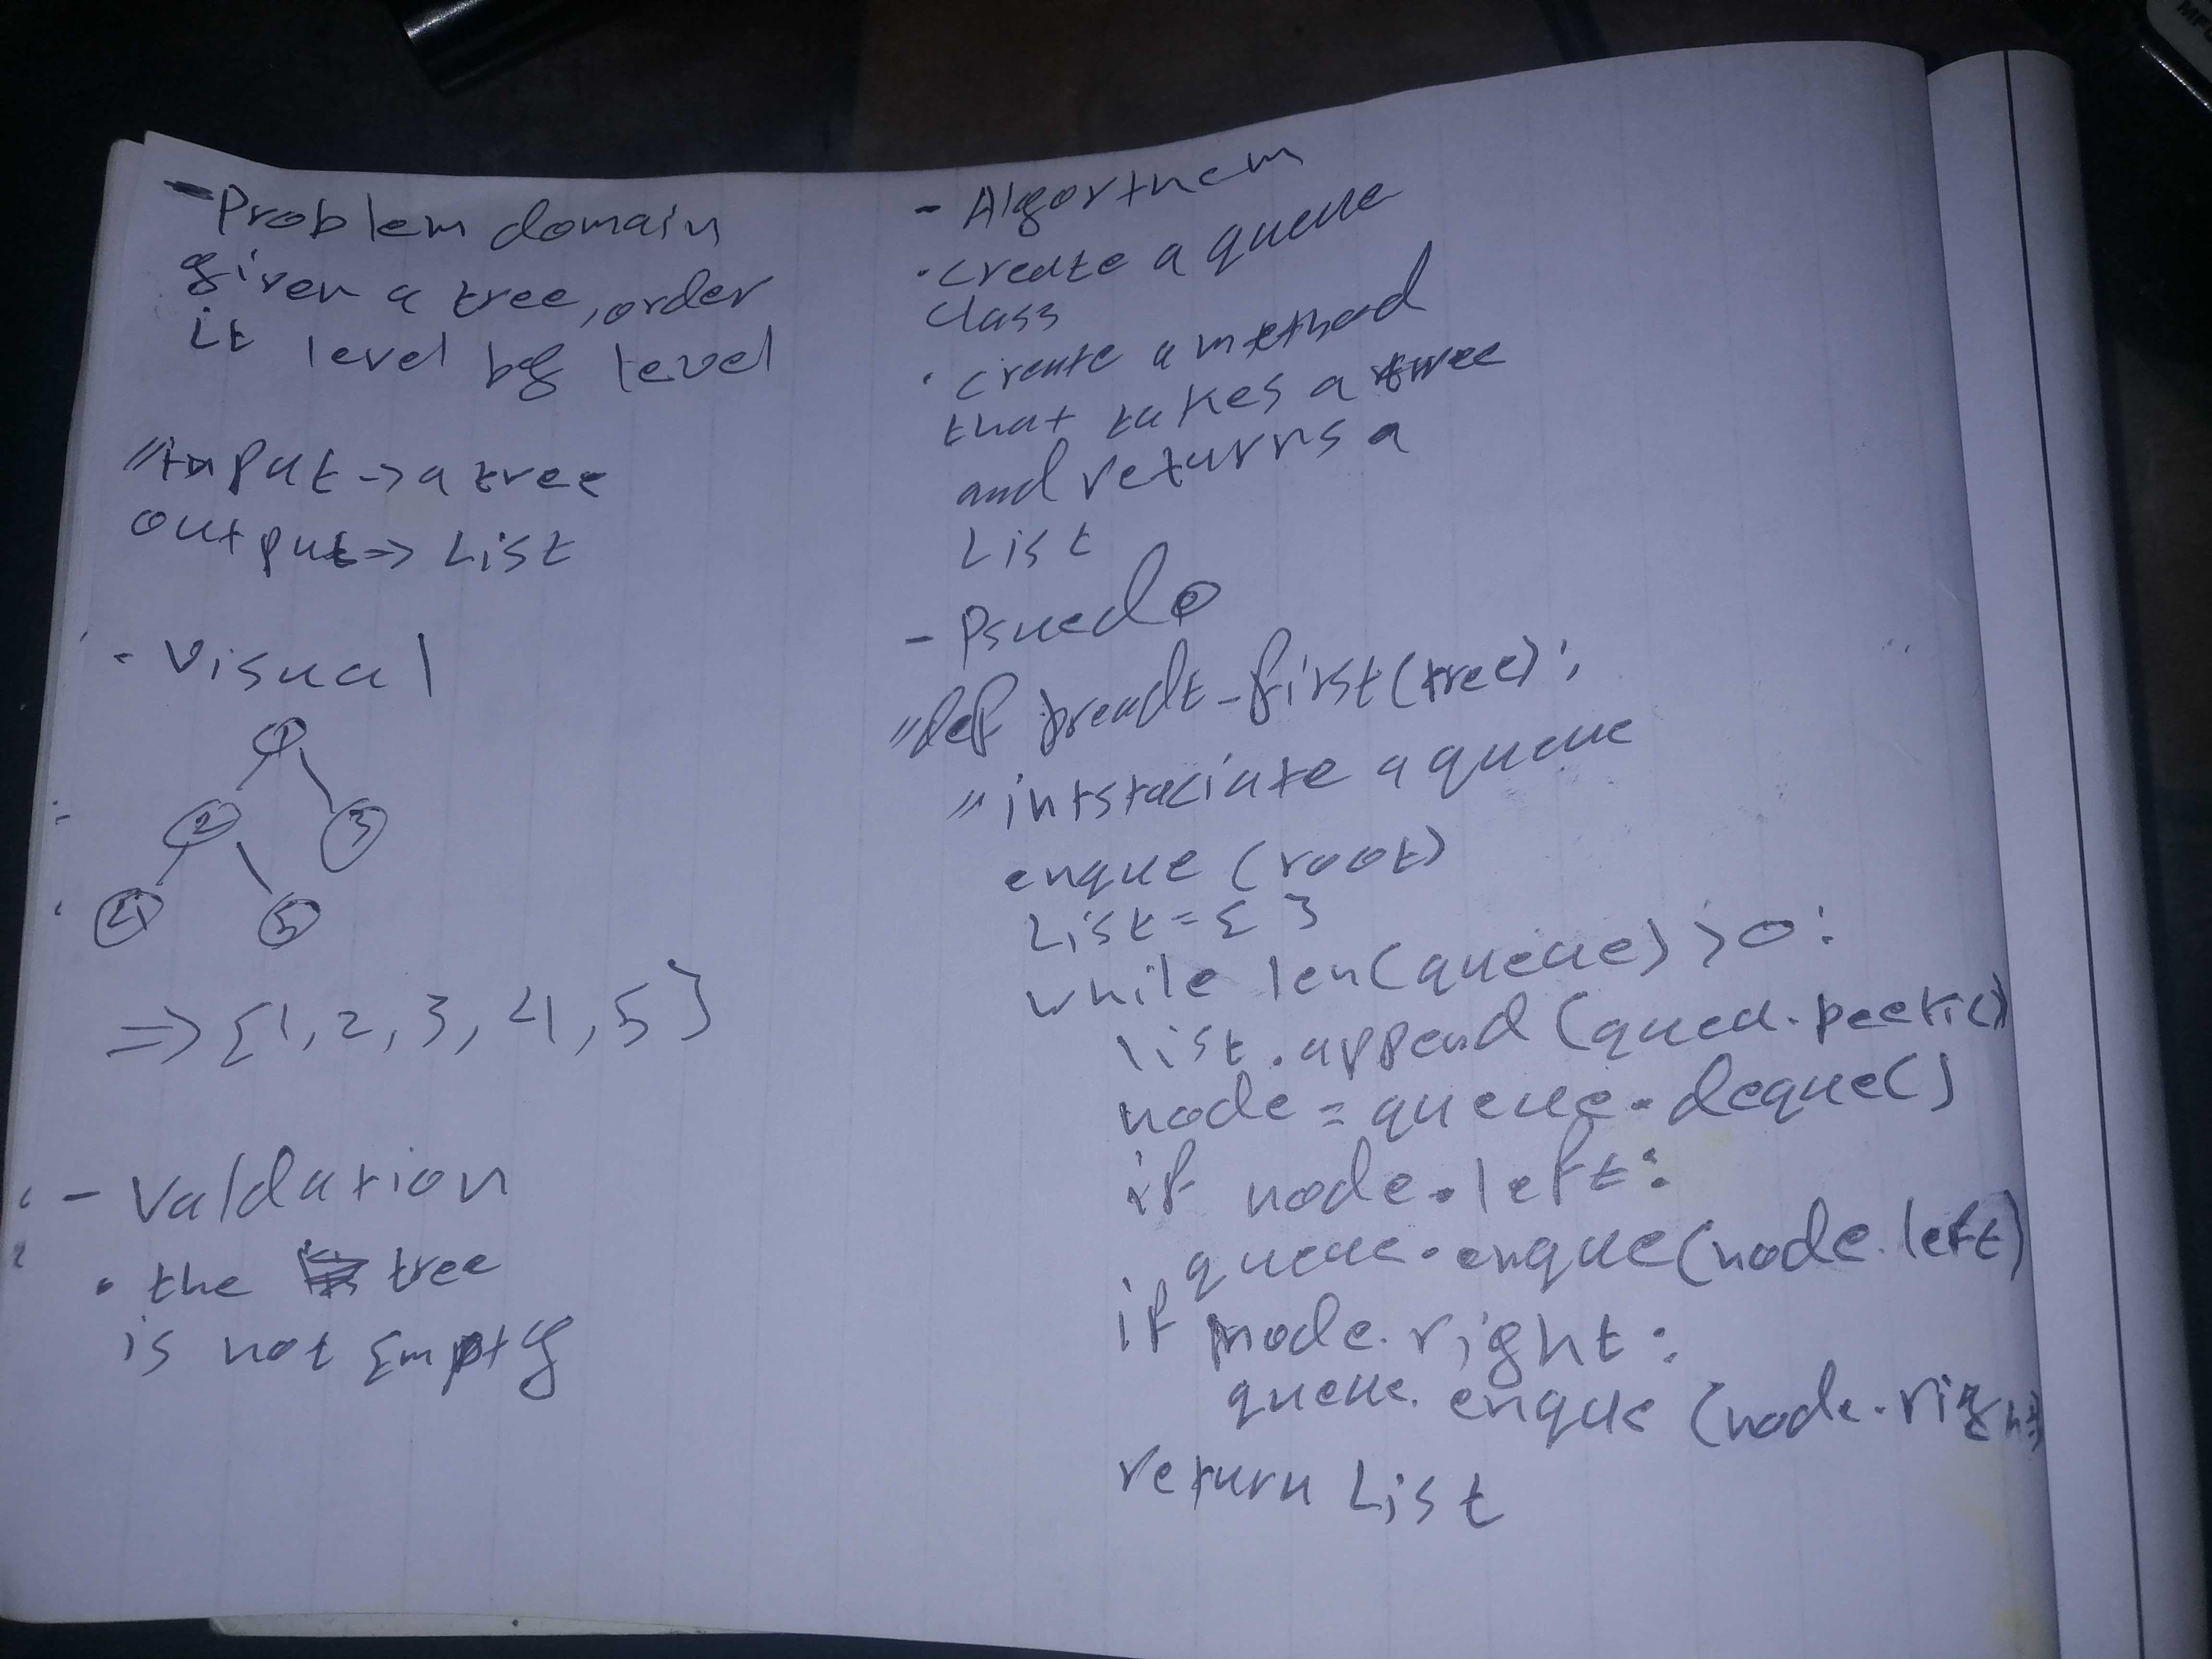 - Problem domain
given a tree, order
it level by level
"Input -> a tree
output => List
- Visual
1
2 3
4 5
=> {1, 2, 3, 4, 5}
- Valdation
• the tree
is not Empty
- Algorthem
• create a queue
class
• create a method
that takes a tree
and returns a
List
- Psuedo
"def breadt-first(tree):
" intstaciate a queue
enque (root)
List = { }
while len(queue) > 0:
list.append(queu.peek())
node = queue.deque()
if node.left:
queue.enque(node.left)
if node.right:
queue.enque (node.right)
return List